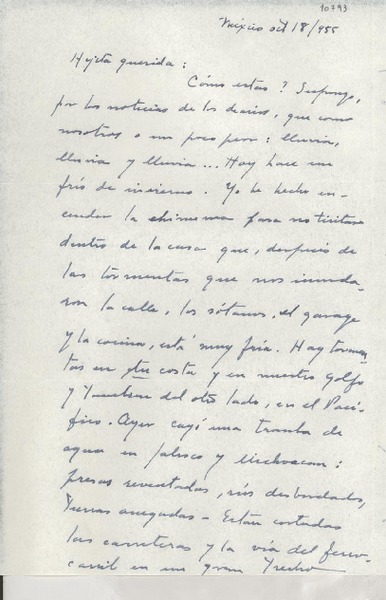 10793
México oct 18/955
Hijita querida:
Cómo estás? Supongo,
por las noticias de los diarios, que como
nosotros o un poco peor: lluvia,
lluvia y lluvia... Hoy hace un
frío de invierno. Yo he hecho en-
cender la chimenea para no tiritar
dentro de la casa que, después de
las tormentas que nos inunda-
ron la calle, los sótanos, el garage
y la cocina, está muy fría. Hay tormen-
tas en tu costa y en nuestro golfo
y también del otro lado, en el Pací-
fico. Ayer cayó una tromba de
agua en Jalisco y Michoacan:
presas reventadas, ríos desbordados,
tierras anegadas - Están cortadas
las carreteras y la vía del ferro-
carril en un gran trecho